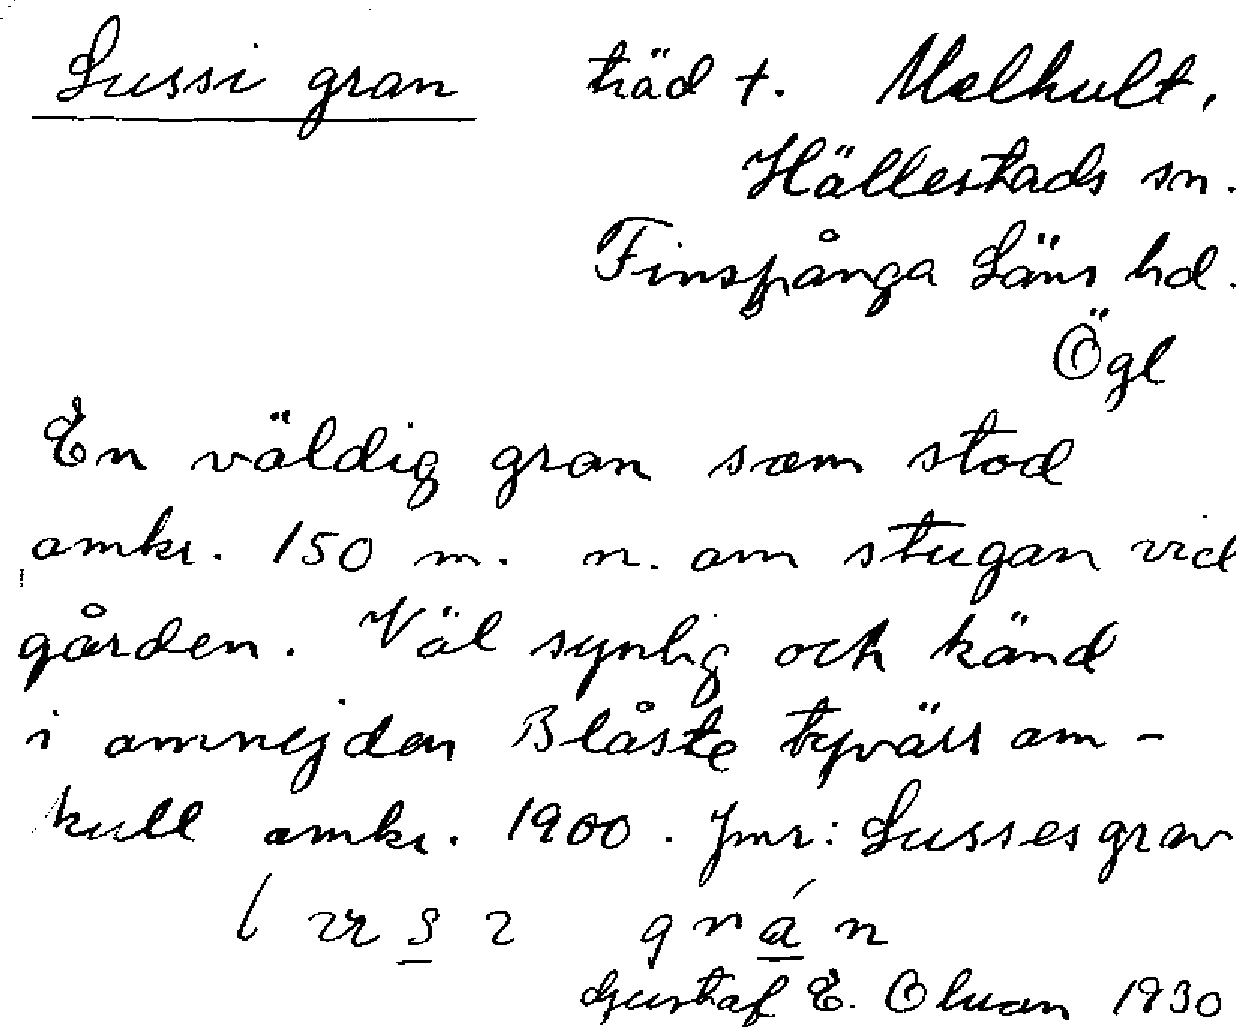 Lussi gran träd +. Melhult,
Hällestads sn.
Finspånga Läns hd.
Ögl
En väldig gran som stod
omkr. 150 m. n. om stugan vid
gården. Väl synlig och känd
i omnejden Blåste tyvärr om-
kull omkr. 1900. Jmr: Lusses grav
Gustaf E. Olsson 1930